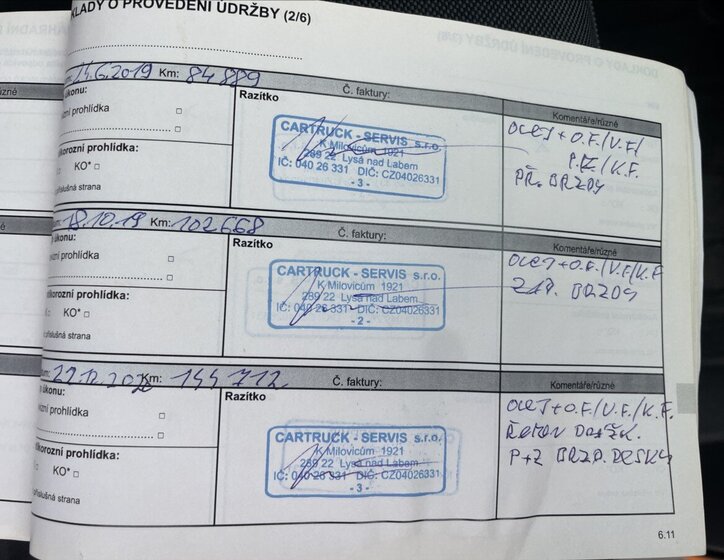 KLADY O PROVEDENÍ ÚDRŽBY (2/6)
14.6.2019 Km: 84 889 Č. faktury:
úkonu: Razítko Komentáře/různé
prohlídka
CARTRUCK - SERVIS s.r.o.
K Milovicům 1921
289 22 Lysá nad Labem
IČ: 040 26 331 DIČ: CZ04026331
- 3 -
OLEJ + O.F./V.F./
P.F./K.F.
PŘ. BRZDY
korozní prohlídka:
KO*
příslušná strana
18.10.19 Km: 102 668 Č. faktury:
úkonu: Razítko Komentáře/různé
zní prohlídka
CARTRUCK - SERVIS s.r.o.
K Milovicům 1921
289 22 Lysá nad Labem
IČ: 040 26 331 DIČ: CZ04026331
- 2 -
OLEJ + O.F./V.F./K.F.
BRZDY
ikorozní prohlídka:
KO*
příslušná strana
Km: 144 712 Č. faktury:
úkonu: Razítko Komentáře/různé
vizní prohlídka
CARTRUCK - SERVIS s.r.o.
K Milovicům 1921
289 22 Lysá nad Labem
IČ: 040 26 331 DIČ: CZ04026331
- 3 -
OLEJ + O.F./V.F./K.F.
P+Z BRZD. DESKY
ikorozní prohlídka:
KO*
příslušná strana
6.11